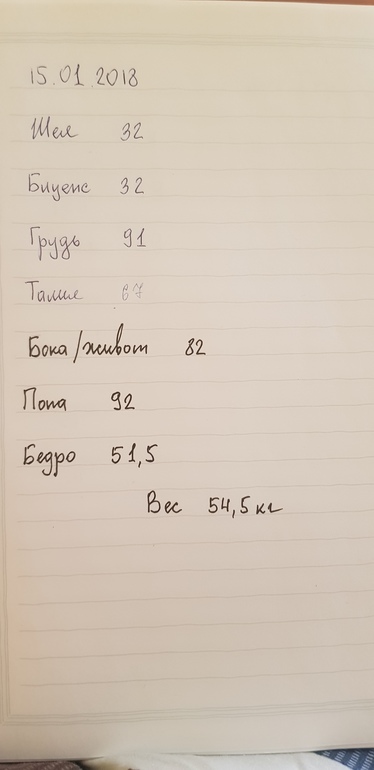 15.01.2018
Шея 32
Бицепс 32
Грудь 91
Талия 67
Бока/живот 82
Попа 92
Бедро 51,5
Вес 54,5 кг